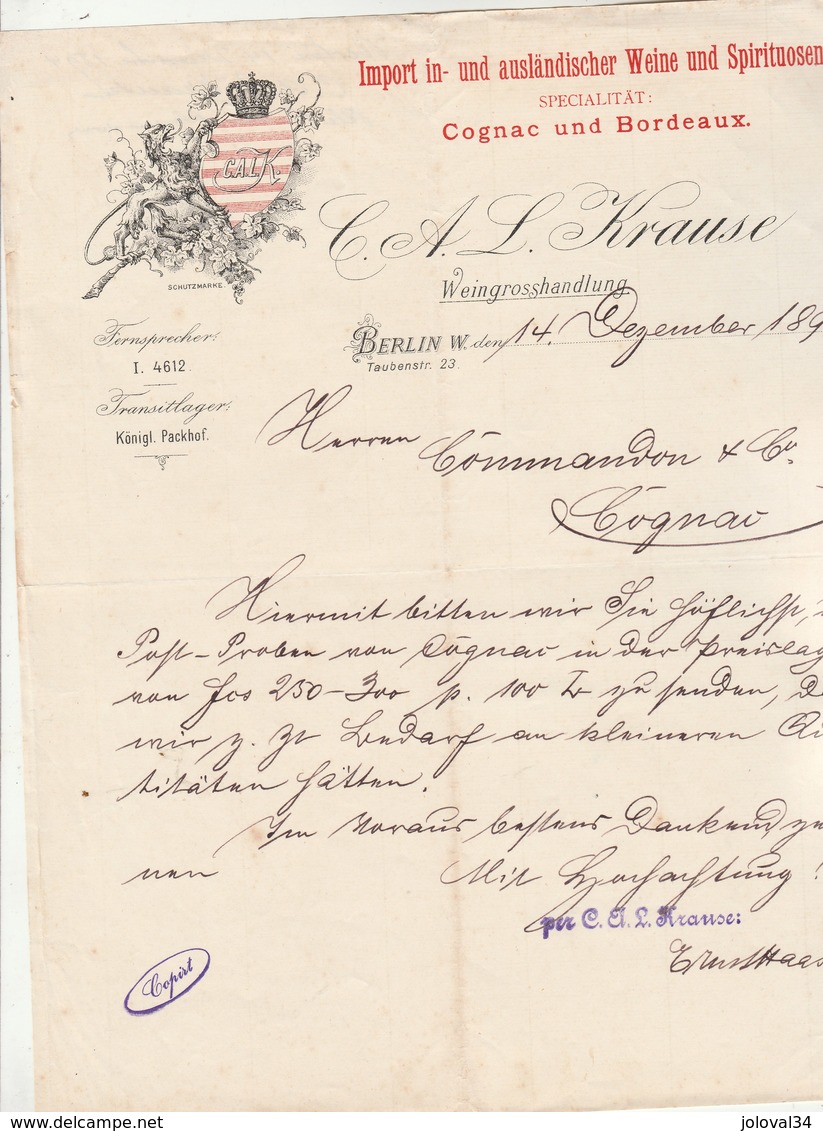 Import in- und ausländischer Weine und Spirituosen
SPECIALITÄT:
Cognac und Bordeaux.
C.A.L.K.
SCHUTZMARKE.
C. A. L. Krause
Weingrosshandlung
BERLIN W. den 14. Dezember 189
Taubenstr. 23.
Fernsprecher:
I. 4612.
Transitlager:
Königl. Packhof.
Herren
Commandon & Co.
Cognac
Hiermit bitten wir Sie höflichst,
Post-Proben von Cognac in der Preislag
von fcs 250-300 p. 100 Lr zu senden, Da
wir z. Zt Bedarf an kleineren Qu
titäten hätten.
Im Voraus bestens Dankend, ze
nen
Mit Hochachtung!
per C. A. L. Krause:
Ernst Haas
Copirt
delcampe.net
joloval34